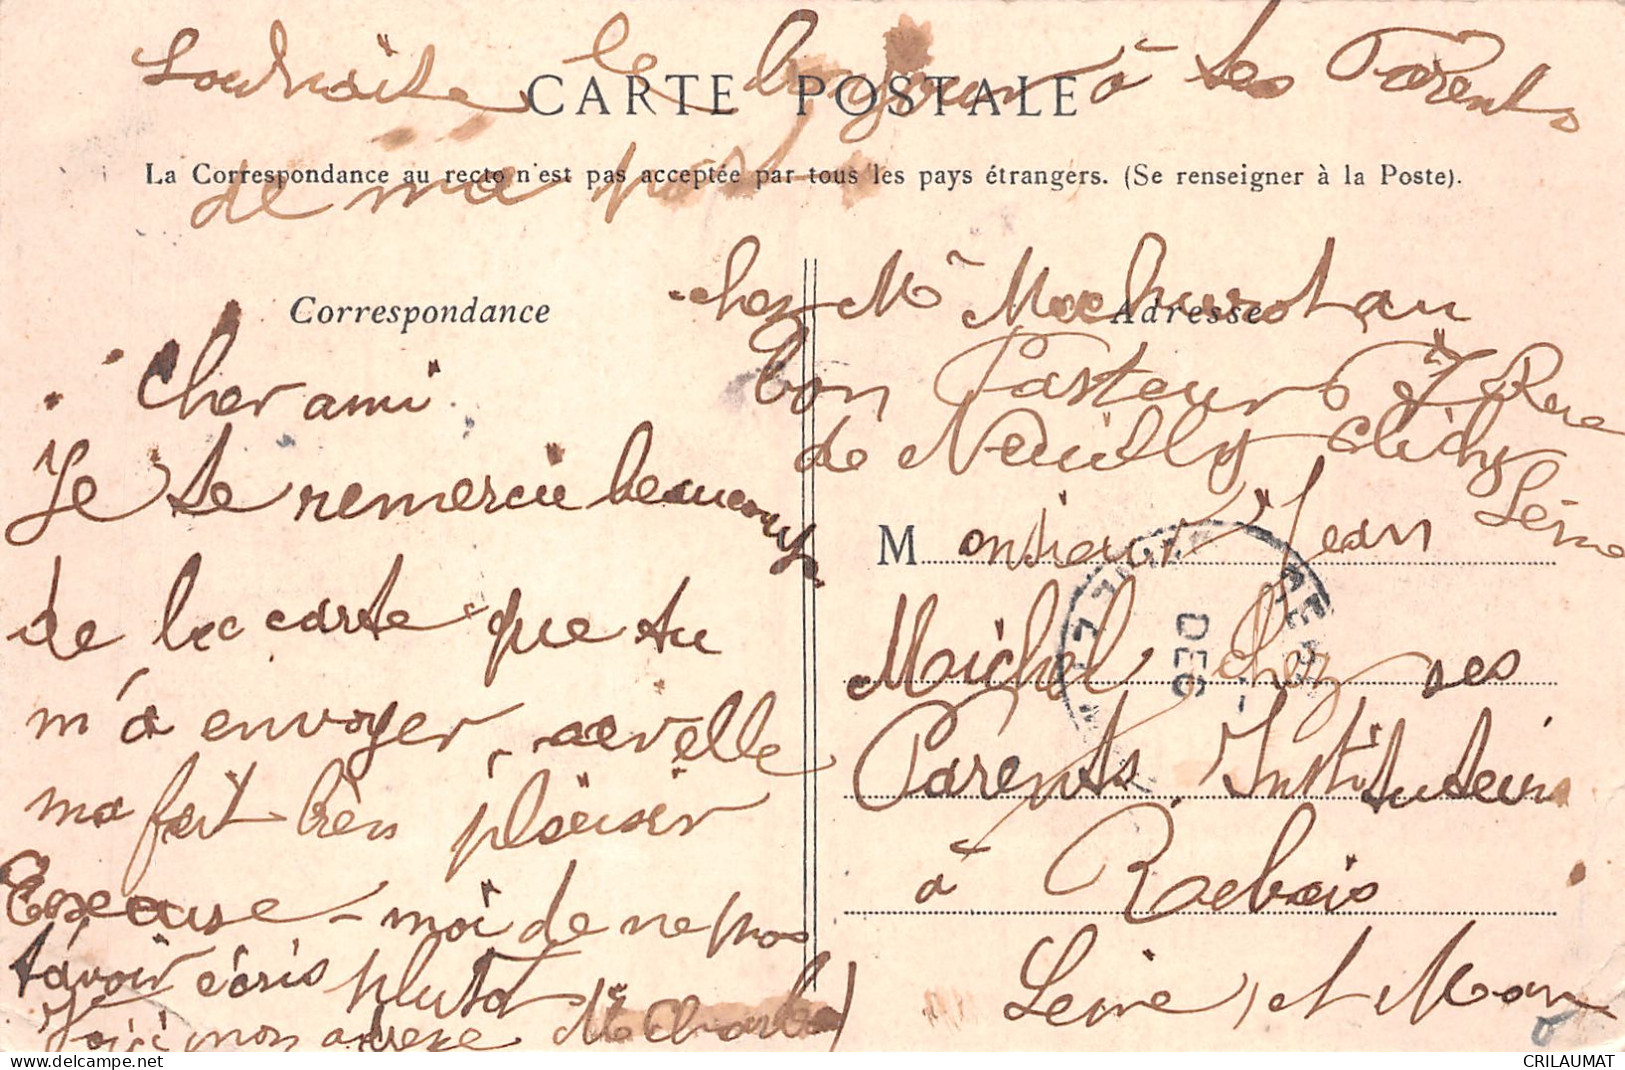 Souhaite le bonjour à tes Parents
CARTE POSTALE
La Correspondance au recto n'est pas acceptée par tous les pays étrangers. (Se renseigner à la Poste).
de ma part
Correspondance
Cher ami
Je te remercie beaucoup
de la carte que tu
m'a envoyer, car elle
ma fait bien plaisir
Excuse-moi de ne pas
t'avoir écris plutot
Voici mon adresse Mr Charles
chez Mr au
Adresse
bon Pasteur 7 Rue
de Neuilly Clichy
Seine
Monsieur Jean
Michel chez ses
Parents Instituteur
à Rebais
Seine et Marn
DEC
CRILAUMAT